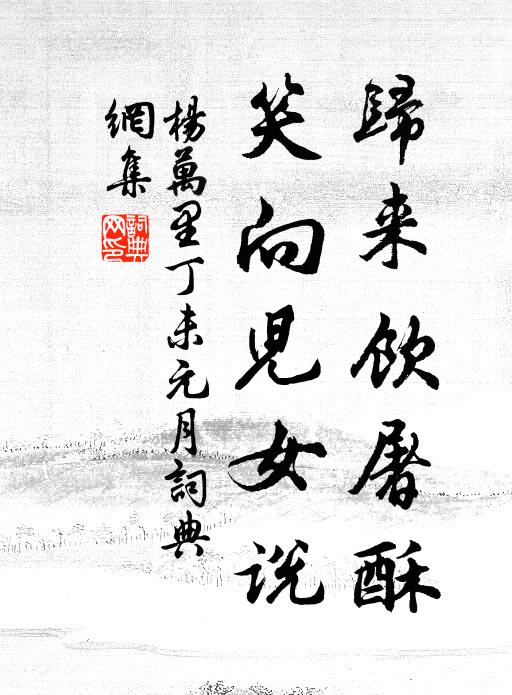 歸来飲屠酥
笑向児女説
楊萬里丁未元月詞典
網集
詞典网印